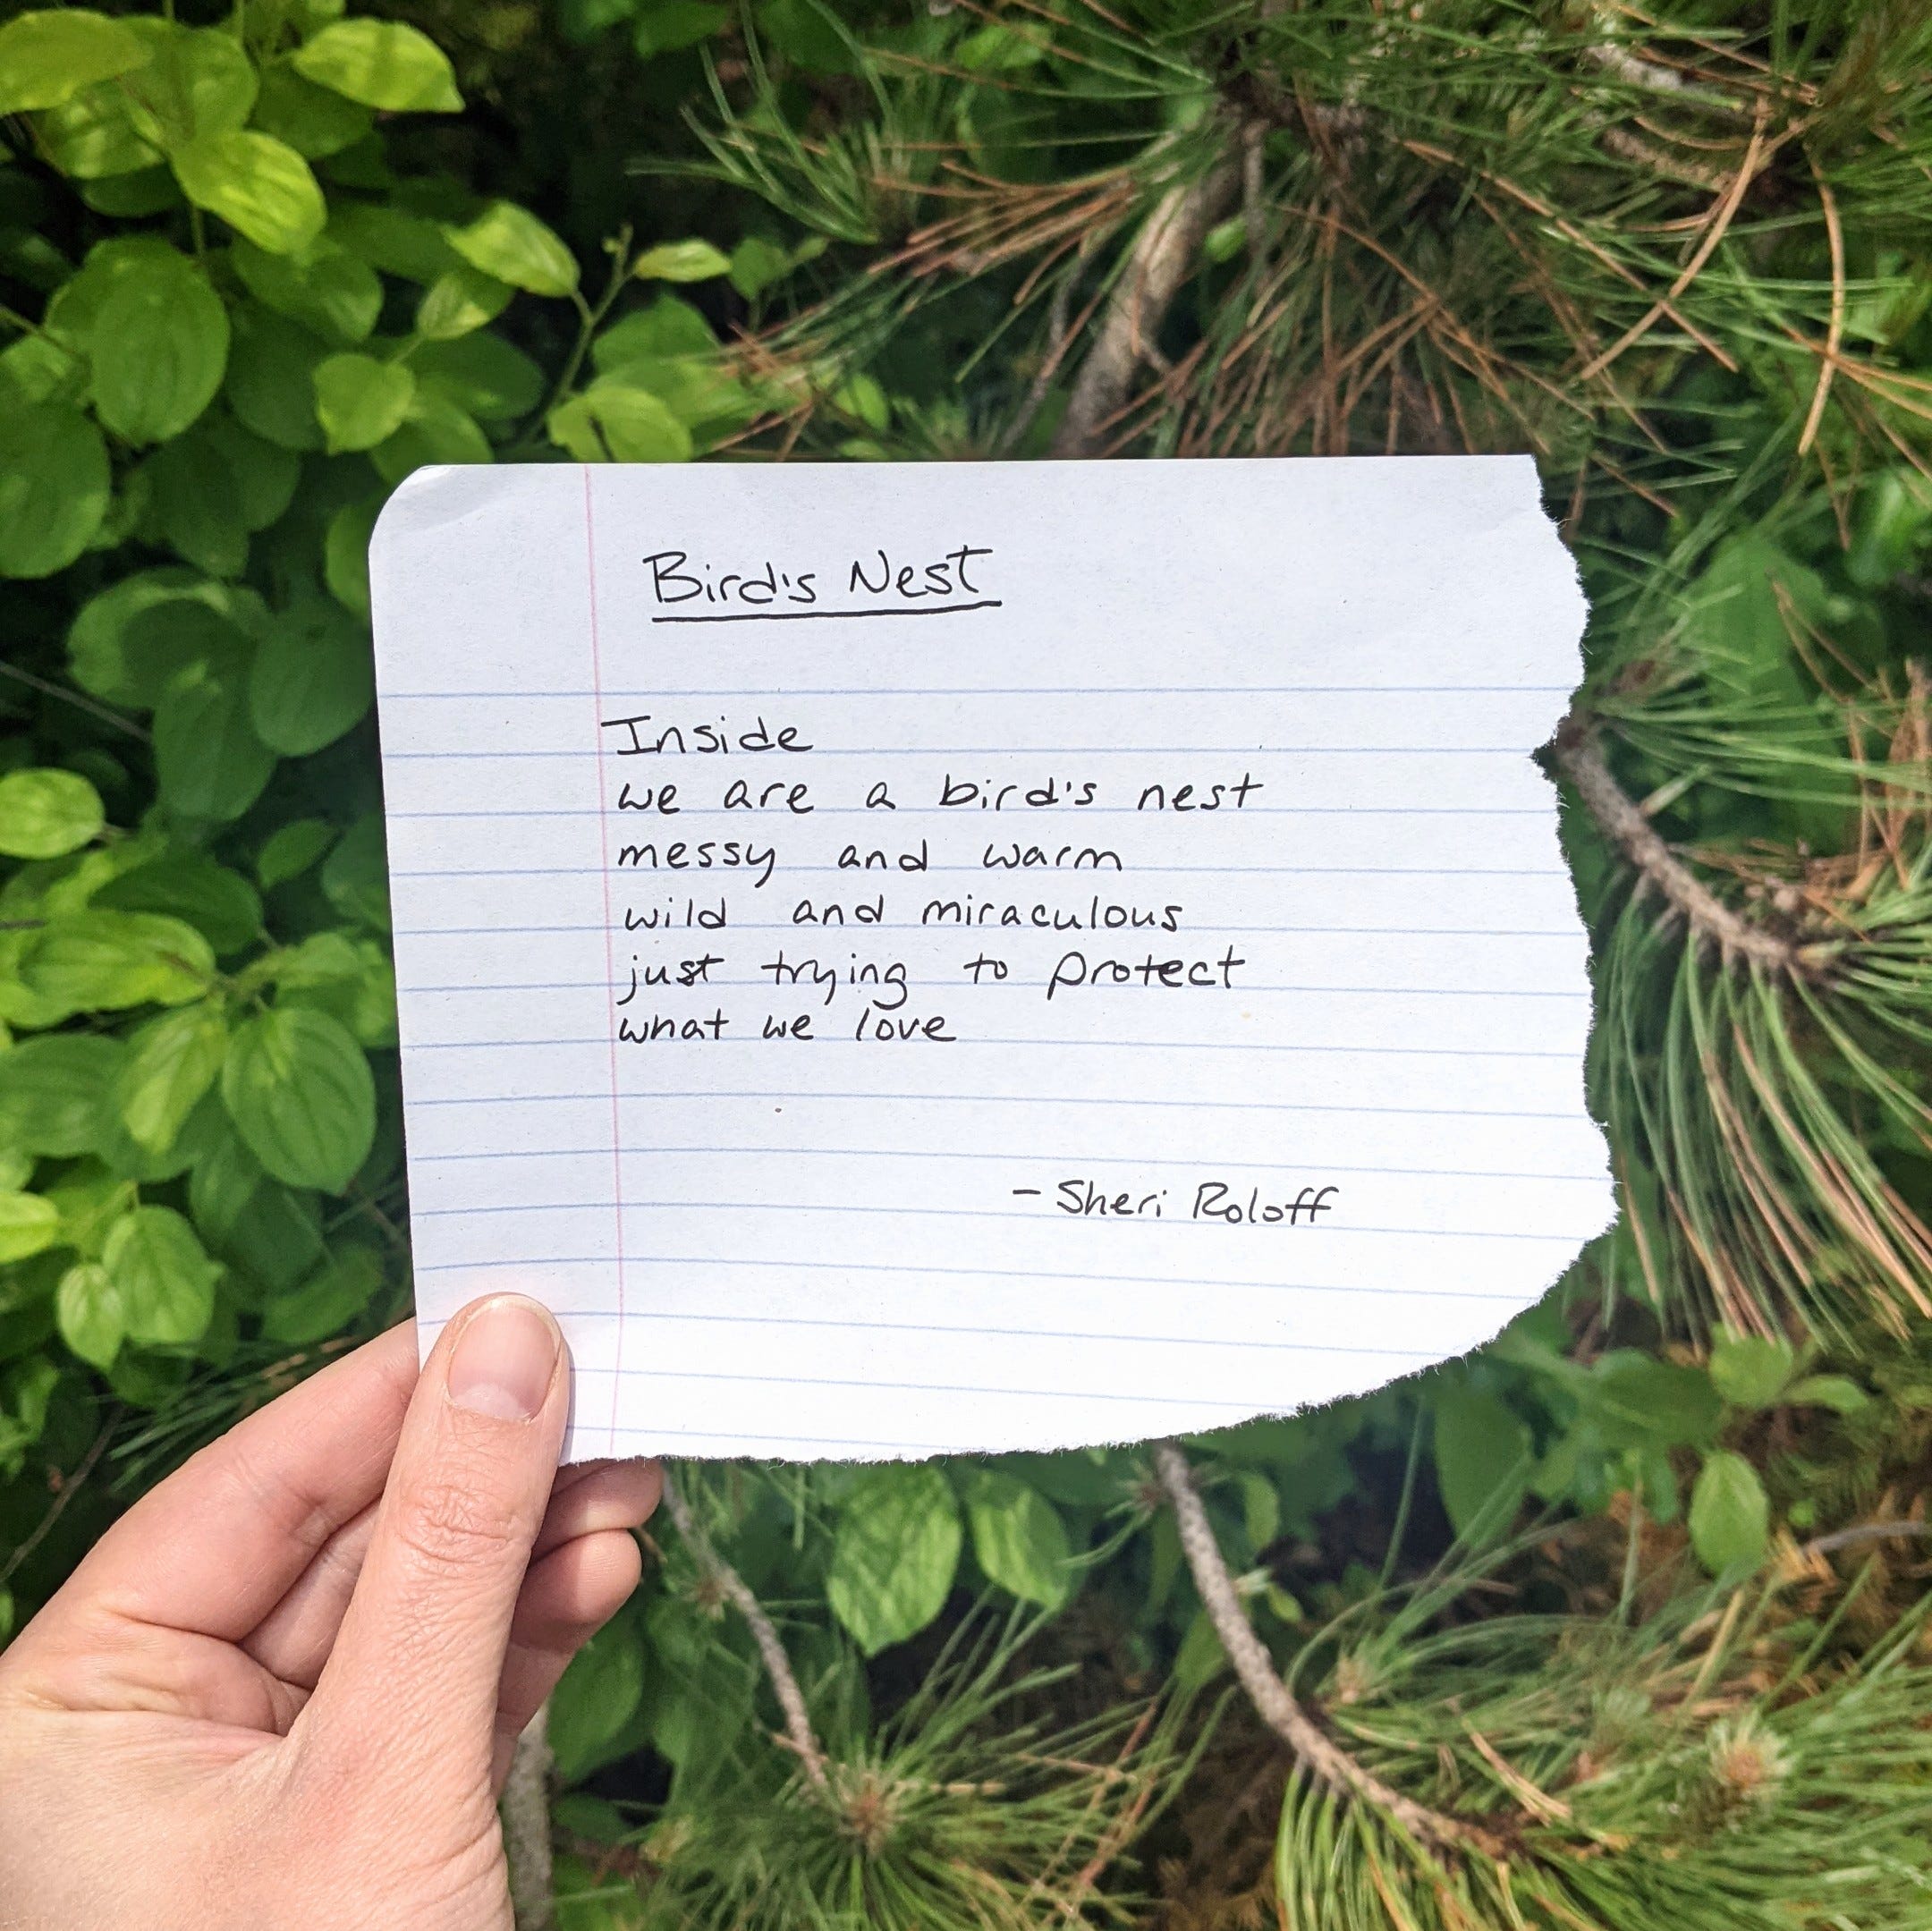 Bird's Nest
Inside
we are a bird's nest
messy and warm
wild and miraculous
just trying to protect
what we love
- Sheri Roloff